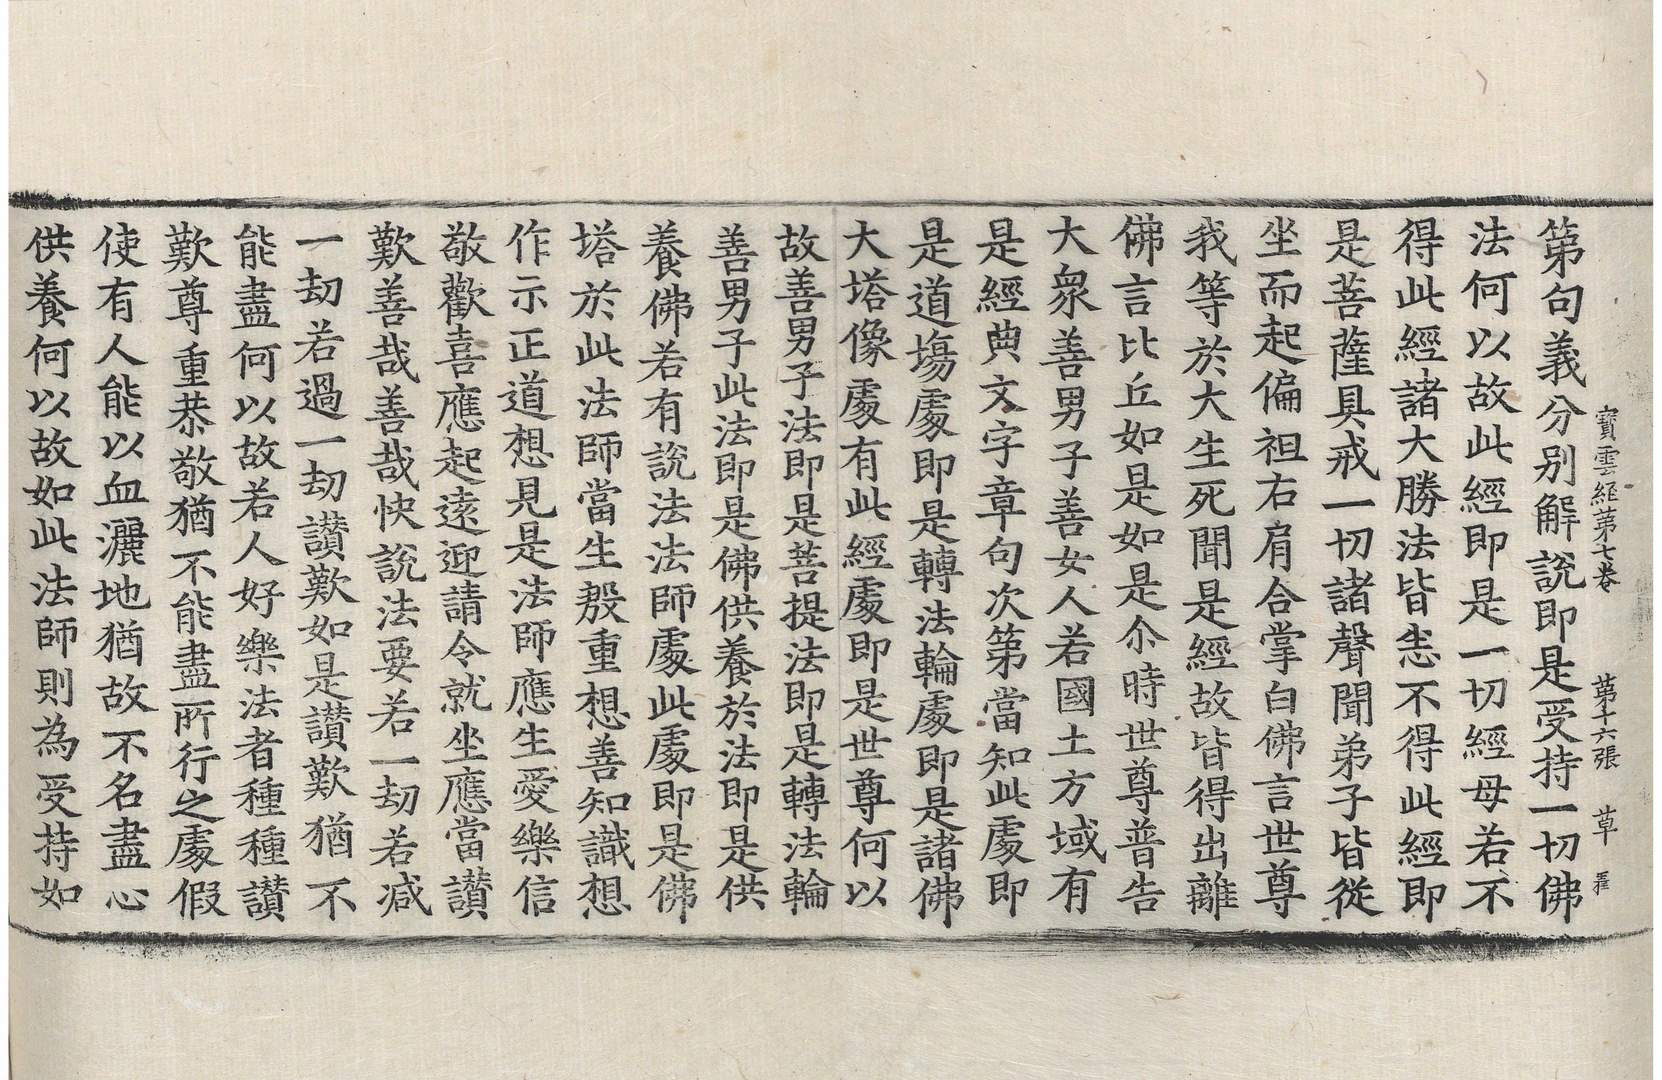 寳雲経第七卷 第十六張 草
第句義分别解說即是受持一切佛
法何以故此經即是一切經母若不
得此經諸大勝法皆悉不得此經即
是菩薩具戒一切諸聲聞弟子皆從
坐而起偏袒右肩合掌白佛言世尊
我等於大生死聞是經故皆得出離
佛言比丘如是如是尒時世尊普告
大衆善男子善女人若國土方域有
是經典文字章句次第當知此處即
是道場處即是轉法輪處即是諸佛
大塔像處有此經處即是世尊何以
故善男子法即是菩提法即是轉法輪
善男子此法即是佛供養於法即是供
養佛若有說法法師處此處即是佛
塔於此法師當生殷重想善知識想
作示正道想見是法師應生愛樂信
敬歡喜應起逺迎請令就坐應當讃
歎善哉善哉快說法要若一劫若减
一劫若過一劫讃歎如是讃歎猶不
能盡何以故若人好樂法者種種讃
歎尊重恭敬猶不能盡所行之處假
使有人能以血灑地猶故不名盡心
供養何以故如此法師則為受持如